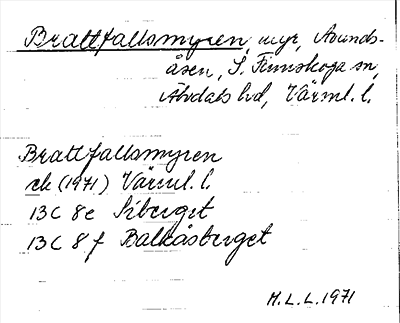 Brattfallsmyren, myr, Avunds-
åsen, S. Finnskoga sn,
Älvdals hd, Värml. l.
Brattfallsmyren
ek (1971) Värml. l.
13C 8e Siberget
13C 8f Balkåsberget
M.L.L. 1971